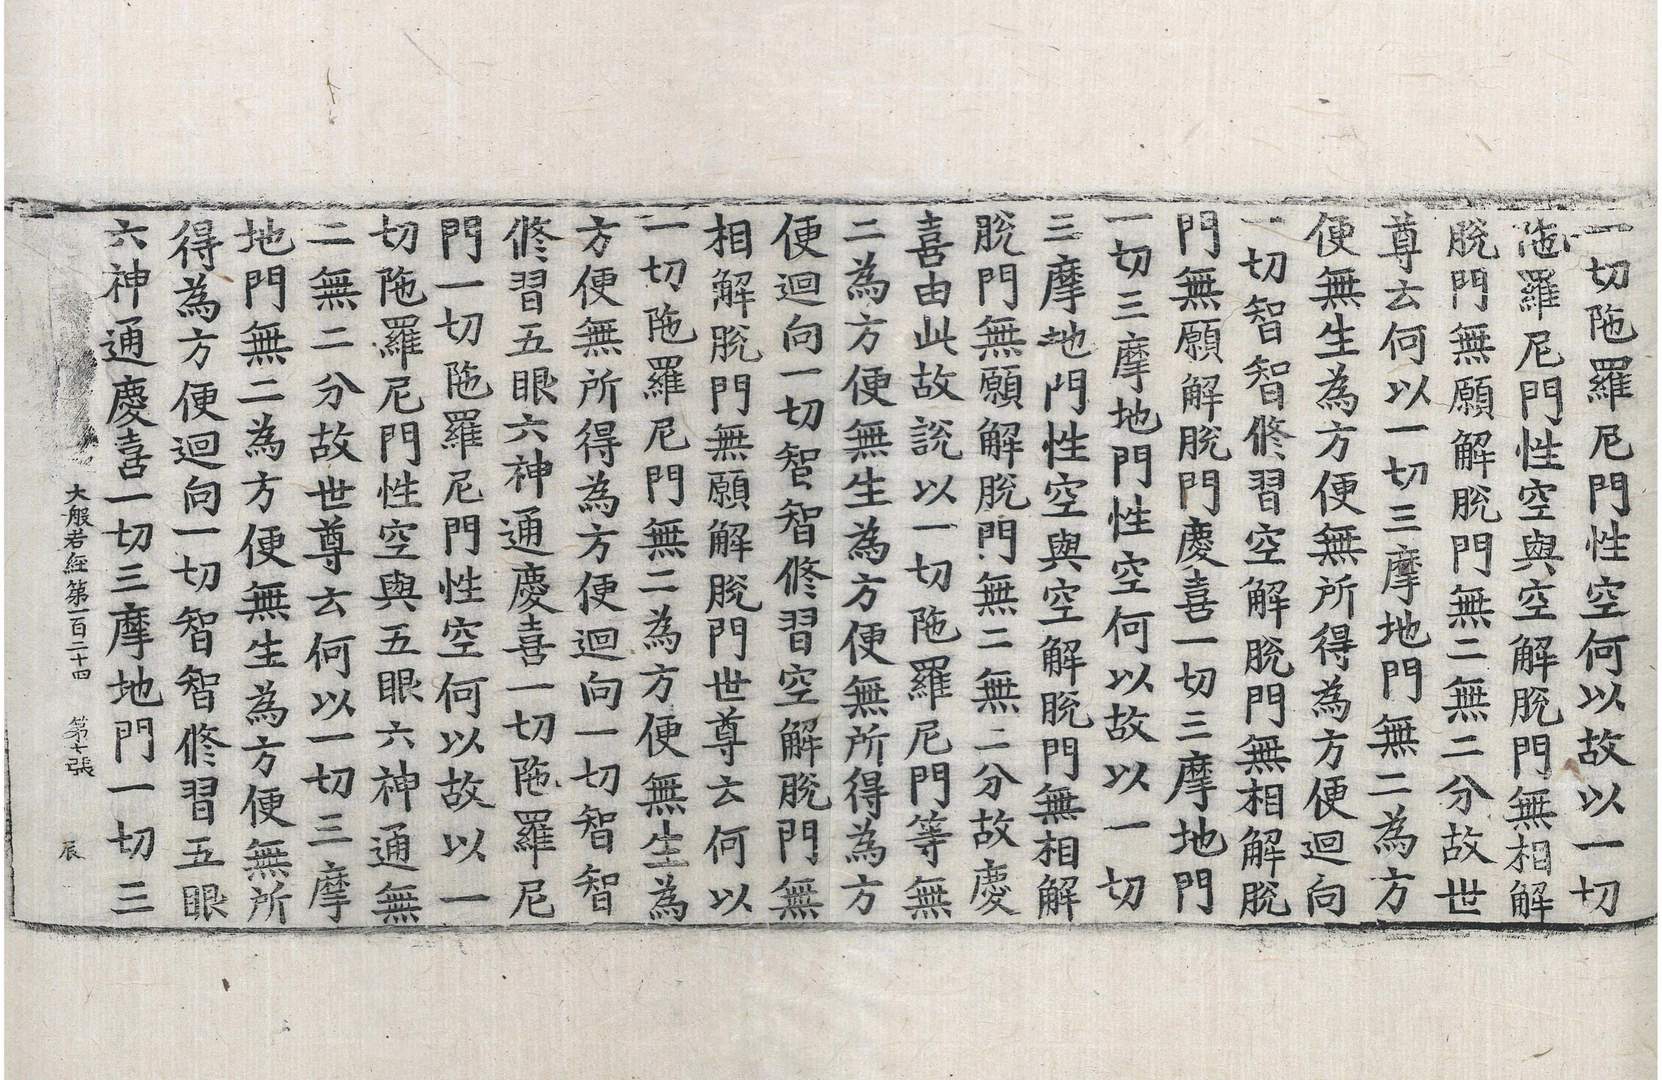 一切陁羅尼門性空何以故以一切
陁羅尼門性空與空解脫門無相解
脫門無願解脫門無二無二分故世
尊云何以一切三摩地門無二為方
便無生為方便無所得為方便迴向
一切智智修習空解脫門無相解脫
門無願解脫門慶喜一切三摩地門
一切三摩地門性空何以故以一切
三摩地門性空與空解脫門無相解
脫門無願解脫門無二無二分故慶
喜由此故說以一切陁羅尼門等無
二為方便無生為方便無所得為方
便迴向一切智智修習空解脫門無
相解脫門無願解脫門世尊云何以
一切陁羅尼門無二為方便無生為
方便無所得為方便迴向一切智智
修習五眼六神通慶喜一切陁羅尼
門一切陁羅尼門性空何以故以一
切陁羅尼門性空與五眼六神通無
二無二分故世尊云何以一切三摩
地門無二為方便無生為方便無所
得為方便迴向一切智智修習五眼
六神通慶喜一切三摩地門一切三
大般若經第一百二十四 第七張 辰